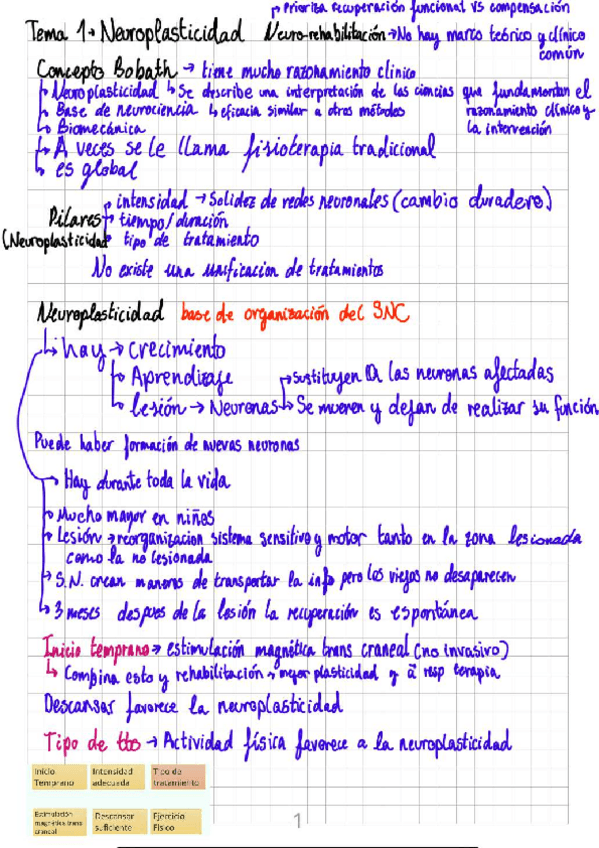 → Prioriza recuperación funcional VS compensación
Tema 1→ Neuroplasticidad Neuro-rehabilitación → No hay marco teórico y clínico común
Concepto Bobath → tiene mucho razonamiento clínico
↳ Neuroplasticidad ↳ Se describe una interpretación de las ciencias que fundamentan el razonamiento clínico y la intervención
↳ Base de neurociencia ↳ eficacia similar a otros métodos
↳ Biomecánica
↳ A veces se le llama fisioterapia tradicional
↳ es global
Pilares (Neuroplasticidad
intensidad → Solidez de redes neuronales (cambio duradero)
tiempo/duración
tipo de tratamiento
No existe una unificación de tratamientos
Neuroplasticidad base de organización del SNC
↳ hay → crecimiento
↳ Aprendizaje
↳ lesión → Neuronas → Sustituyen a las neuronas afectadas
↳ Se mueren y dejan de realizar su función
Puede haber formación de nuevas neuronas
→ Hay durante toda la vida
→ Mucho mayor en niños
→ Lesión → reorganización sistema sensitivo y motor tanto en la zona lesionada como la no lesionada
→ S.N. crean maneras de transportar la info pero las viejas no desaparecen
→ 3 meses despues de la lesión la recuperación es espontánea
Inicio temprano → estimulación magnética trans craneal (no invasivo)
↳ Combina esto y rehabilitación → mejor plasticidad y resp terapia
Descansar favorece la neuroplasticidad
Tipo de tto → Actividad física favorece a la neuroplasticidad
Inicio Temprano
Intensidad adecuada
Tipo de tratamiento
Estimulación magnética trans craneal
Descansar suficiente
Ejercicio Físico
1